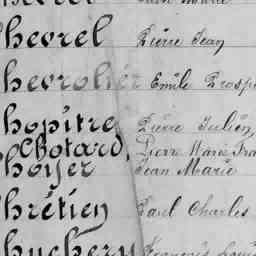 Chevrel Pierre Jean
Chevrolier Emile Prosper
Chopitre Pierre Julien
Chotard Pierre Marie Fra
Choyer Jean Marie
Chrétien Paul Charles
Chuchery François Louis